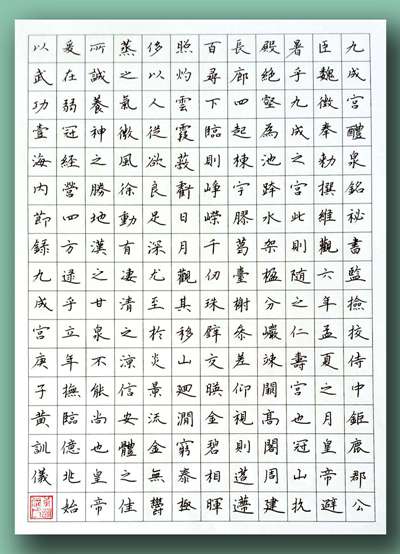 九成宮醴泉銘祕書監撿校侍中鉅鹿郡公
臣魏徵奉勅撰維觀六年孟夏之月皇帝避
暑乎九成之宮此則隨之仁壽宮也冠山抗
殿絕壑為池跨水架楹分巖竦闕高閣周建
長廊四起棟宇膠葛臺榭叅差仰視則迢遰
百尋下臨則崢嶸千仞珠璧交暎金碧相暉
照灼雲霞蔽虧日月觀其移山迴澗窮泰極
侈以人從欲良足深尤至於炎景流金無鬱
蒸之氣微風徐動有淒清之涼信安體之佳
所誠養神之勝地漢之甘泉不能尚也皇帝
爰在弱冠經營四方逮乎立年撫臨億兆始
以武功壹海內節錄九成宮庚子黃訓儀